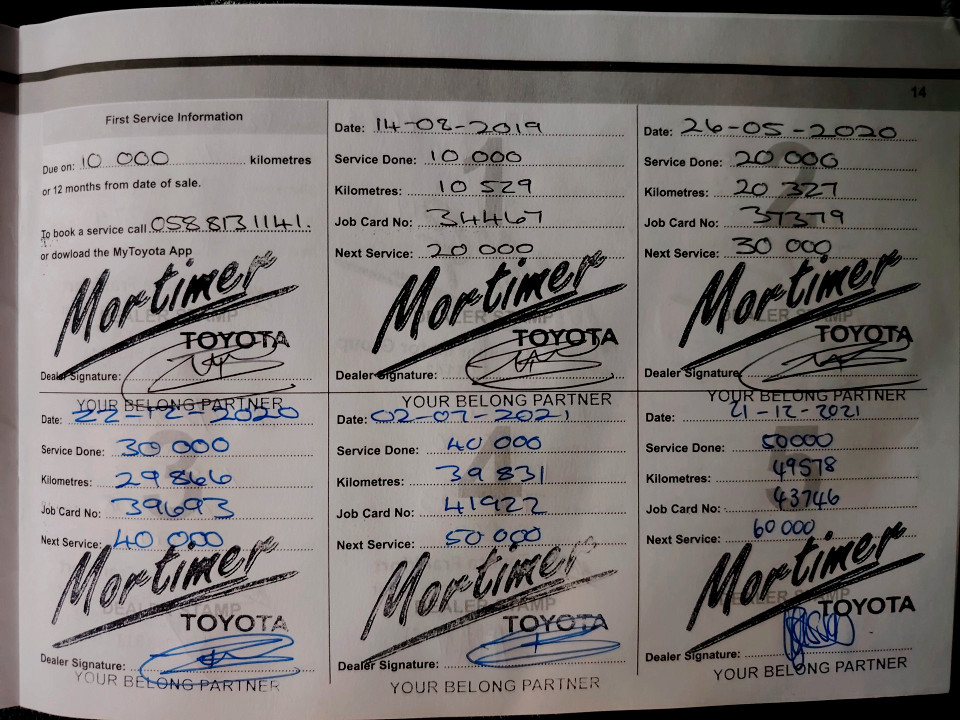 14
First Service Information
Due on: 10 000 kilometres
or 12 months from date of sale.
To book a service call 058 813 1141.
or dowload the MyToyota App
Mortimer
DEALER STAMP
TOYOTA
Dealer Signature:
YOUR BELONG PARTNER
1
Date: 14-08-2019
Service Done: 10 000
Kilometres: 10 529
Job Card No: 34467
Next Service: 20 000
Mortimer
DEALER STAMP
TOYOTA
Dealer Signature:
YOUR BELONG PARTNER
2
Date: 26-05-2020
Service Done: 20 000
Kilometres: 20 327
Job Card No: 37379
Next Service: 30 000
Mortimer
DEALER STAMP
TOYOTA
Dealer Signature:
YOUR BELONG PARTNER
3
Date: 22-12-2020
Service Done: 30 000
Kilometres: 29866
Job Card No: 39693
Next Service: 40 000
Mortimer
DEALER STAMP
TOYOTA
Dealer Signature:
YOUR BELONG PARTNER
4
Date: 02-07-2021
Service Done: 40 000
Kilometres: 39 831
Job Card No: 41922
Next Service: 50 000
Mortimer
DEALER STAMP
TOYOTA
Dealer Signature:
YOUR BELONG PARTNER
5
Date: 21-12-2021
Service Done: 50000
Kilometres: 49578
Job Card No: 43746
Next Service: 60 000
Mortimer
DEALER STAMP
TOYOTA
Dealer Signature:
YOUR BELONG PARTNER